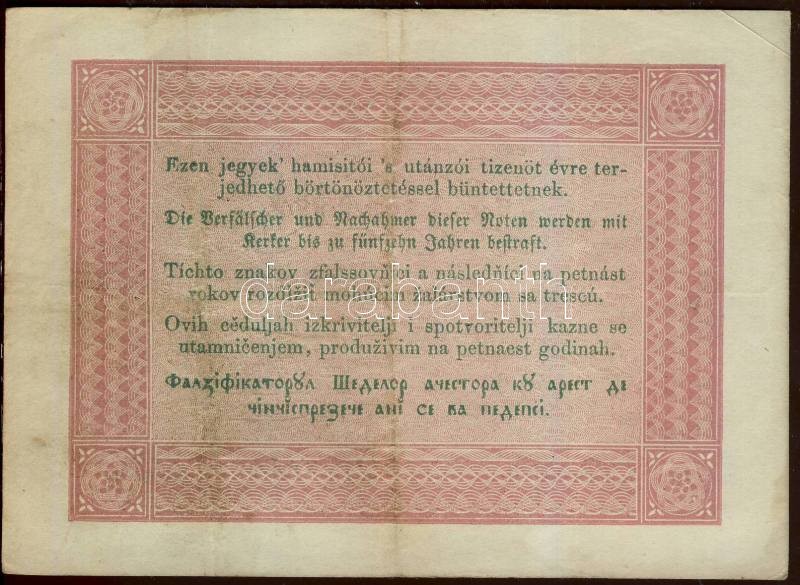 Ezen jegyek’ hamisitói ’s utánzói tizenöt évre ter-
jedhető börtönöztetéssel büntettetnek.
Die Verfälscher und Nachahmer dieser Noten werden mit
Kerker bis zu fünfzehn Jahren bestraft.
Tíchto znakov zfalssovňíci a následňíci na petnást
rokov rozôjžit mohúcim žalárstvom sa trescú.
darabanth
Ovih cěduljah izkrivitelji i spotvoritelji kazne se
utamničenjem, produživim na petnaest godinah.
Фалꙁіфікаторꙋл Шеделор ачестора кꙋ арест де
чінчіспреꙁече ані се ва педепсі.